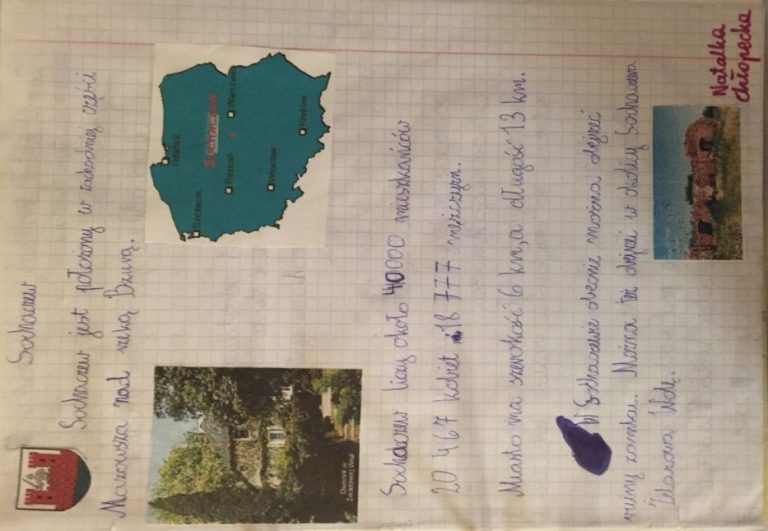 Sochaczew
Sochaczew jest położony w zachodniej części
Mazowsza nad rzeką Bzurą.
Gdańsk
Szczecin
Sochaczew
Poznań
Warszawa
Wrocław
Kraków
Dworek w
Żelazowej Woli
Sochaczew liczy około 40000 mieszkańców
20 467 kobiet i 18 777 mężczyzn.
Miasto ma szerokość 6 km, a długość 13 km.
W Sochaczewie obecnie można obejrzeć
ruiny zamku. Można też obejrzeć w okolicy Sochaczewa
Żelazowa Wolę.
Natalka
chłopecka